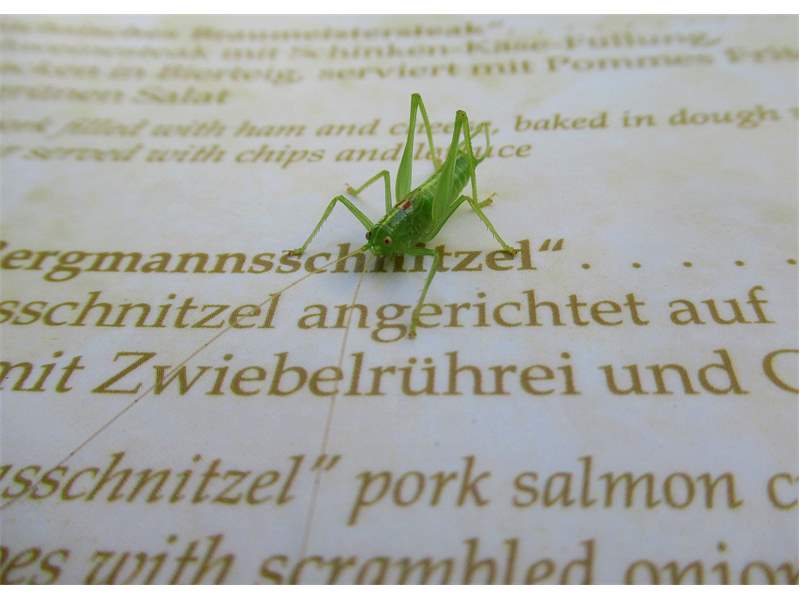 Braumeistersteak"
mit Schinken-Käse-Füllung,
in Bierteig, serviert mit Pommes
Salat
filled with ham and cheese, baked in dough
served with chips and lettuce
Bergmannsschnitzel“ . . . . . .
sschnitzel angerichtet auf
mit Zwiebelrührei und
sschnitzel" pork salmon
with scrambled onion